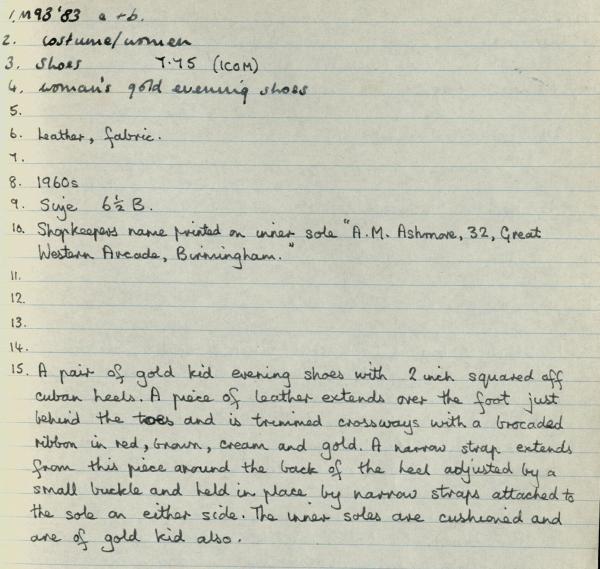 1. M93'83 a + b.
2. costume/women
3. shoes 7.75 (ICOM)
4. woman's gold evening shoes
5.
6. Leather, fabric.
7.
8. 1960s
9. Size 6½ B.
10. Shopkeepers name printed on inner sole "A.M. Ashmore, 32, Great
Western Arcade, Birmingham."
11.
12.
13.
14.
15. A pair of gold kid evening shoes with 2 inch squared off
cuban heels. A piece of leather extends over the foot just
behind the toes and is trimmed crossways with a brocaded
ribbon in red, brown, cream and gold. A narrow strap extends
from this piece around the back of the heel adjusted by a
small buckle and held in place by narrow straps attached to
the sole on either side. The inner soles are cushioned and
are of gold kid also.